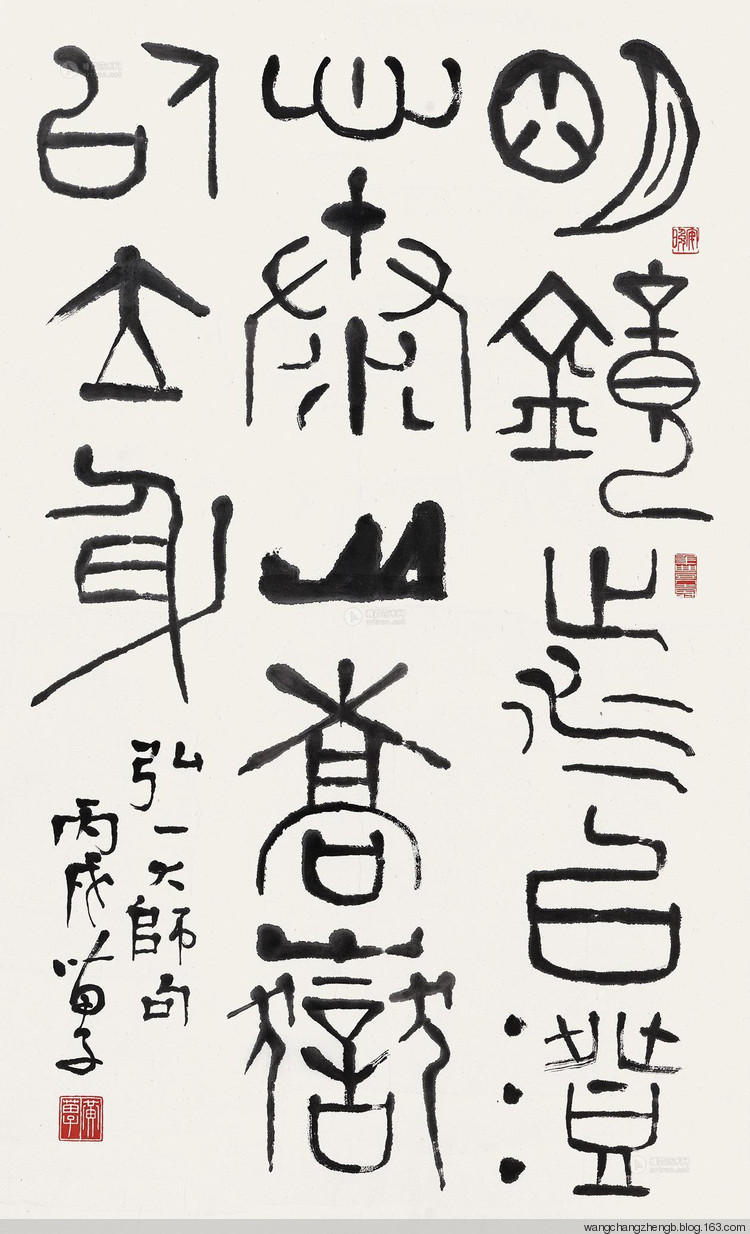 明鏡止水以澄
心泰山喬嶽
以立身
弘一大師句
丙戌苗子
wangchangzhengb.blog.163.com